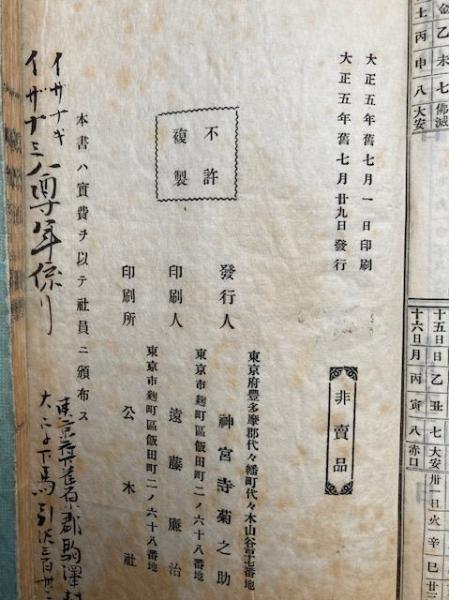 金乙未七佛滅
土丙申八大安
十五日日乙丑七大安卅一日火辛巳廿三
十六日月丙寅八赤口
大正五年舊七月一日印刷
大正五年舊七月廿九日發行
不許
複製
非賣品
東京府豐多摩郡代々幡町代々木山谷 番地
發行人 神宮寺菊之助
東京市麴町區飯田町二ノ六十八番地
印刷人 遠藤廉治
東京市麴町區飯田町二ノ六十八番地
印刷所 公木社
本書ハ實費ヲ以テ社員ニ頒布ス
イサナギ
イザナミ 尊年係り
東京府荏原郡駒澤村
大字下馬引沢三百卅